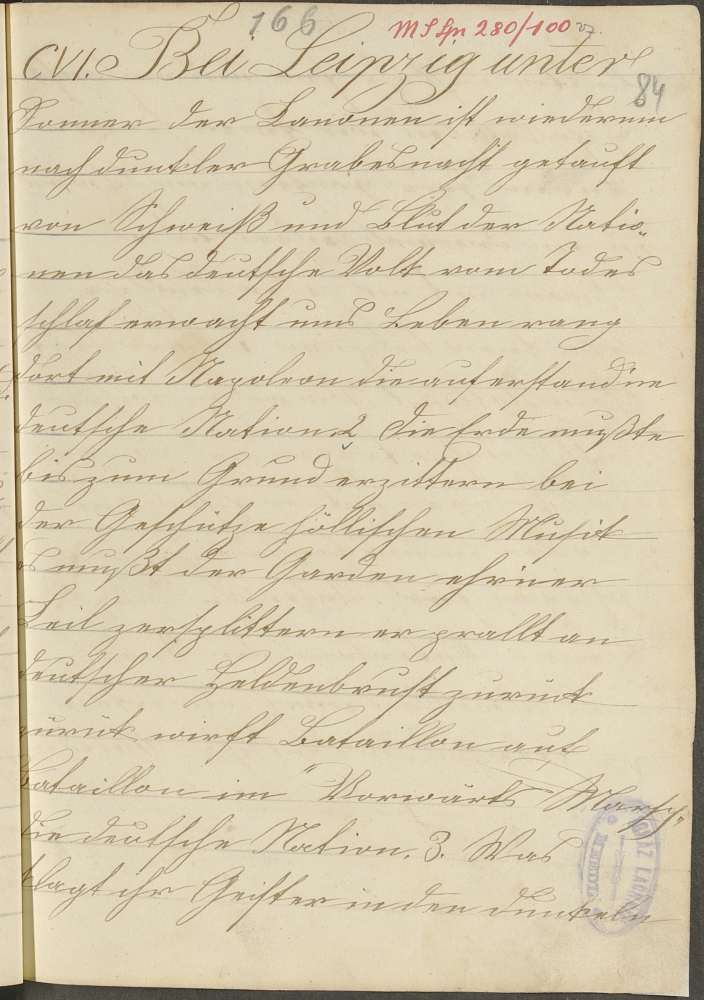 166
MS Ln 280/100
84
CVI. Bei Leipzig unter
Donner der Canonen ist wiederum
nach dunkler Grabesnacht getauft
von Schweiß und Blut der Natio„
nen das deutsche Volk vom Todes
schlaf erwacht ums Leben rang
dort mit Napoleon die auferstandne
deutsche Nation. 2 Die Erde mußte
bis zum Grund erzittern bei
der Geschütze höllischen Musik
es mußt der Garden ehrner
Keil zersplittern er prallt an
deutscher Heldenbrust zurük
zurük wirft Bataillon auf
Bataillon im "Vorwärts Marsch„
die deutsche Nation. 3. Was
klagt ihr Geister in den dunkeln